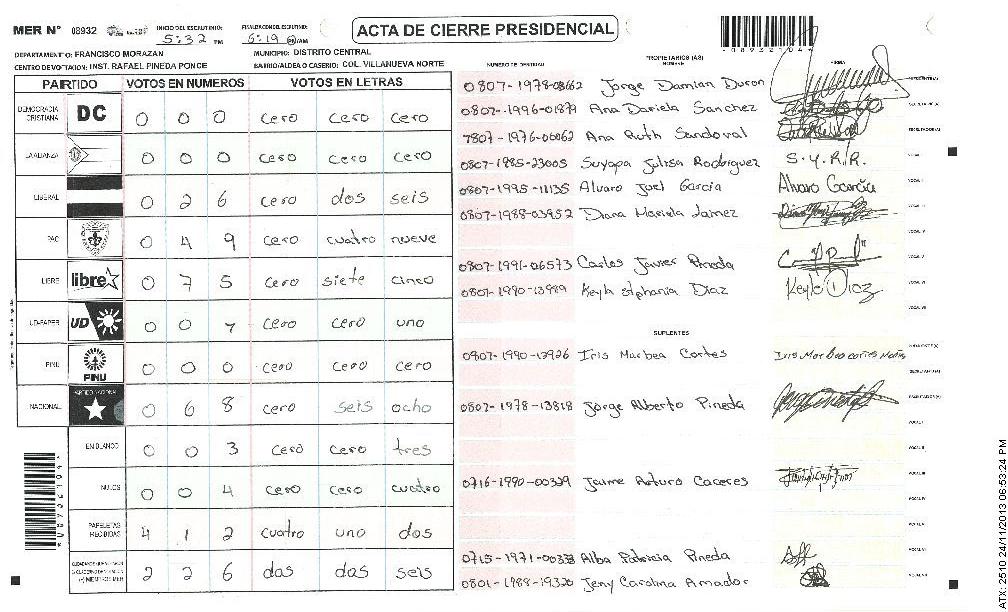 MER N° 08932 INICIO DEL ESCRUTINIO: 5:32 PM FINALIZACION DEL ESCRUTINIO: 6:19 PM/AM ACTA DE CIERRE PRESIDENCIAL
DEPARTAMENTO: FRANCISCO MORAZAN MUNICIPIO: DISTRITO CENTRAL
CENTRO DE VOTACION: INST. RAFAEL PINEDA PONCE BARRIO/ALDEA O CASERIO: COL. VILLANUEVA NORTE
PARTIDO VOTOS EN NUMEROS VOTOS EN LETRAS
DEMOCRACIA CRISTIANA DC 0 0 0 cero cero cero
LA ALIANZA 0 0 0 cero cero cero
LIBERAL 0 2 6 cero dos seis
PAC 0 4 9 cero cuatro nueve
LIBRE libre 0 7 5 cero siete cinco
UD-FAPER UD 0 0 1 cero cero uno
PINU PINU 0 0 0 cero cero cero
NACIONAL PARTIDO NACIONAL 0 6 8 cero seis ocho
EN BLANCO 0 0 3 cero cero tres
NULOS 0 0 4 cero cero cuatro
PAPELETAS RECIBIDAS 4 1 2 cuatro uno dos
2 2 6 dos dos seis
NUMERO DE IDENTIDAD PROPIETARIOS (AS) NOMBRE FIRMA
0807-1978-08662 Jorge Damian Duron
0807-1996-01879 Ana Dariela Sanchez
7807-1976-00062 Ana Ruth Sandoval
0807-1985-23005 Suyapa Julisa Rodriguez S.Y.R.R.
0807-1995-11135 Alvaro Joel Garcia Alvaro Garcia
0807-1988-03952 Diana Mariela Jamez
0807-1991-06573 Carlos Javier Pineda
0807-1990-13989 Keyla Stphania Diaz Keyla Diaz
SUPLENTES
0807-1990-13926 Iris Marbea Cortes
0807-1978-13818 Jorge Alberto Pineda
0716-1990-00329 Jaime Arturo Caceres
0715-1971-00333 Alba Patricia Pineda
0801-1988-19320 Jeny Carolina Amador
ATX: 2510 24/11/2013 06:53:24 PM